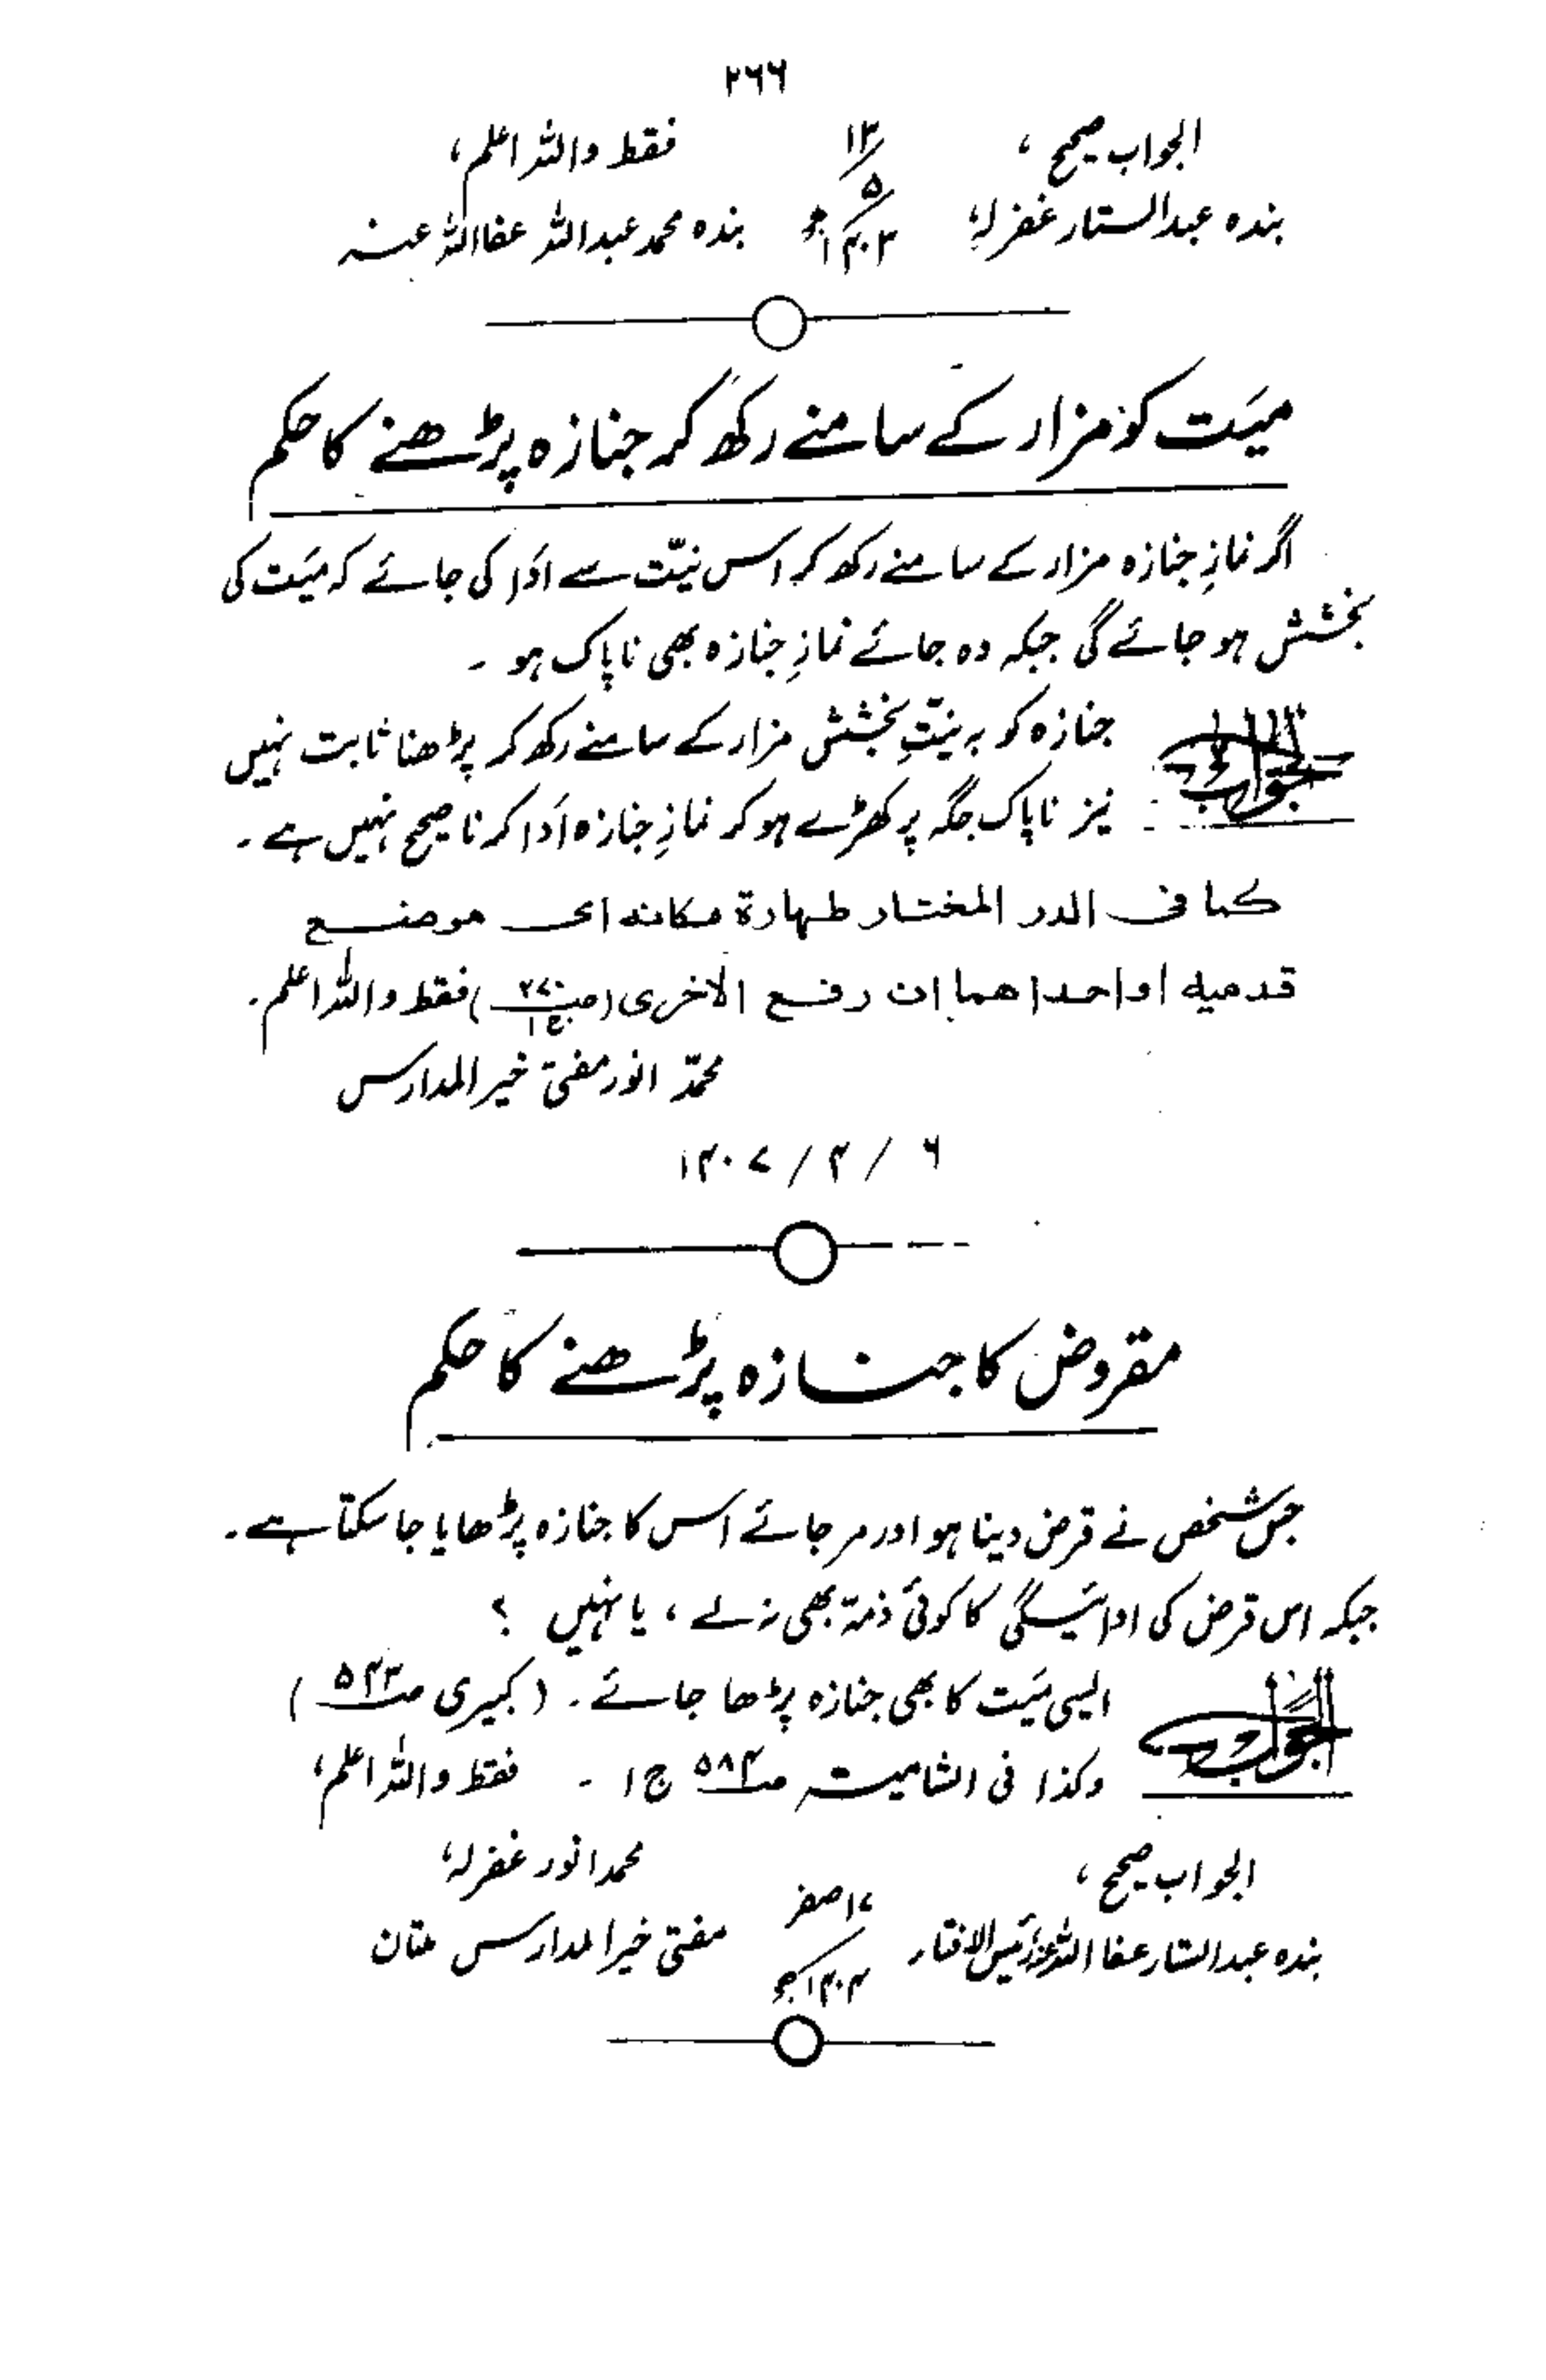 ۲۶۶
الجواب صحیح ، ۱۳ فقط واللہ اعلم ،
بندہ عبدالستار غفرلہٗ ۵ ۱۴۰۲ھ بندہ محمد عبداللہ عفااللہ عنہ
میّت کو مزار کے سامنے رکھ کر جنازہ پڑھنے کا حکم
اگر نمازِ جنازہ مزار کے سامنے رکھ کر اس نیّت سے اَدَا کی جائے کہ میّت کی
بخشش ہو جائے گی جبکہ وہ جائے نمازِ جنازہ بھی ناپاک ہو ۔
الجواب جنازہ کو بہ نیّتِ بخشش مزار کے سامنے رکھ کر پڑھنا ثابت نہیں
نیز ناپاک جگہ پر کھڑے ہو کر نمازِ جنازہ اَدَا کرنا صحیح نہیں ہے ۔
کما فی الدر المختار طہارۃ مکانہ ای موضع
قدمیہ او احداھما ان رفع الاخری (صـ۲۷۰ ج۱) فقط واللہ اعلم ۔
محمّد انور مفتی خیر المدارس
۶ / ۴ / ۱۴۰۷
مقروض کا جنازہ پڑھنے کا حکم
جس شخص نے قرض دینا ہو اور مر جائے اس کا جنازہ پڑھایا جا سکتا ہے ۔
جبکہ اس قرض کی ادائیگی کا کوئی ذمّہ بھی نہ لے ، یا نہیں ؟
الجواب ایسی میّت کا بھی جنازہ پڑھا جائے ۔ (کبیری صـ۵۴۳)
وکذا فی الشامیۃ صـ۵۸۴ ج ۱ ۔ فقط واللہ اعلم ،
محمد انور غفرلہٗ
الجواب صحیح ،
بندہ عبدالستار عفا اللہ عنہ رئیس الافتاء صفر ۱۴۰۴ھ مفتی خیر المدارس ملتان